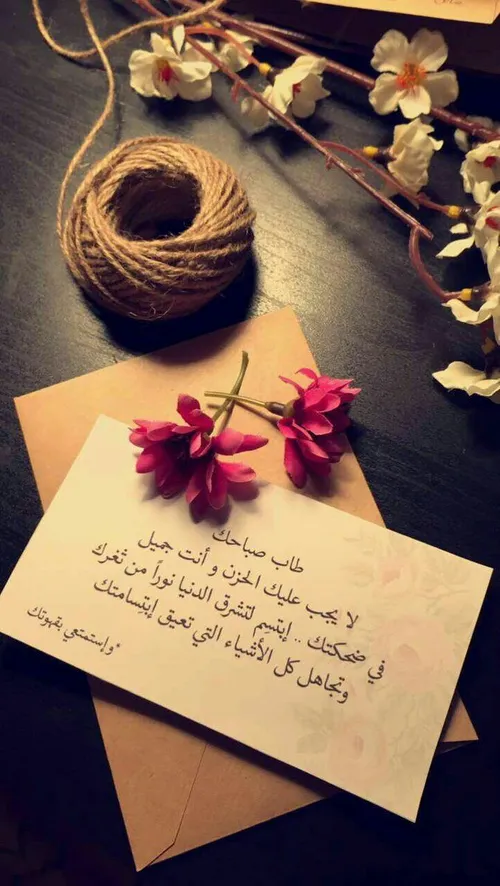 طاب صباحك
لا يجب عليك الحزن و أنت جميل
في ضحكتك .. إبتسِم لتشرق الدنيا نوراً من ثغرك
وتجاهل كل الأشياء التي تعيق إبتِسامتك
*وإستمتعي بقهوتك